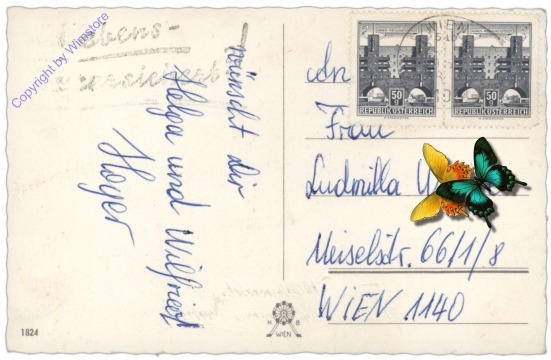 Copyright by Wimstore
Lebens-
versichert
wünscht dir
Helga und Wilfried
Hoyer
WIEN
50 g
REPUBLIK ÖSTERREICH
50 g
REPUBLIK ÖSTERREICH
An
Frau
Ludmilla
Meiselstr. 66/1/8
WIEN 1140
H B
WIEN
1824